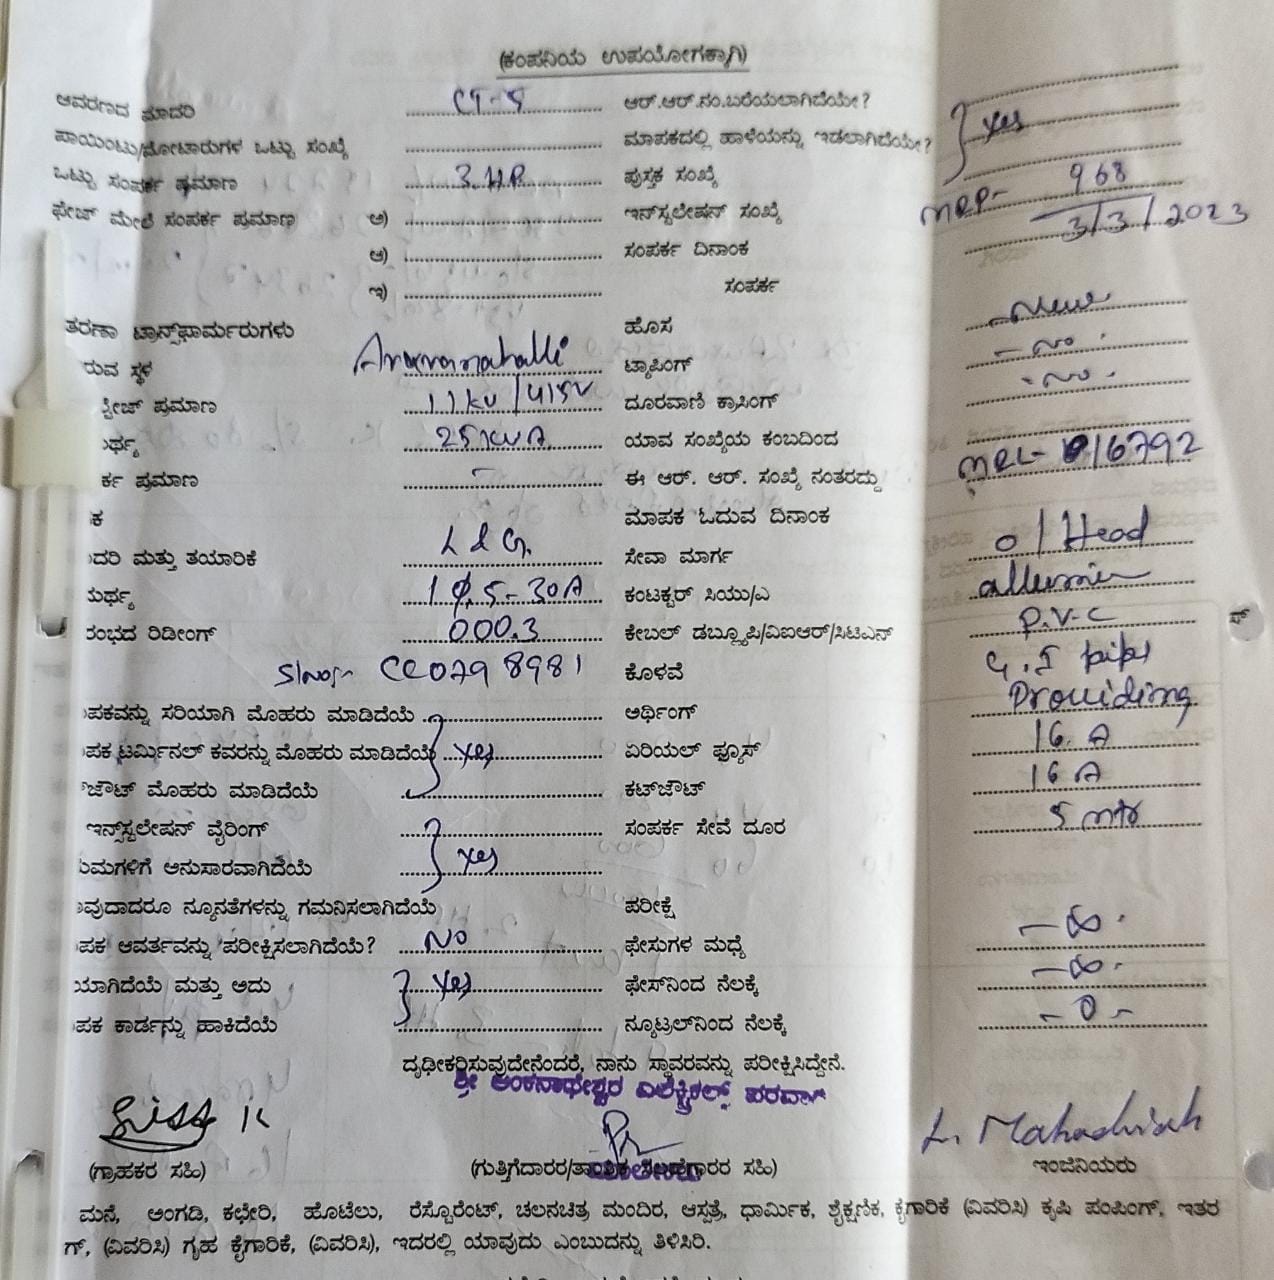 (ಕಂಪನಿಯ ಉಪಯೋಗಕ್ಕಾಗಿ)
ಆವರಣದ ಮಾದರಿ CT-5 ಆರ್.ಆರ್.ನಂ.ಬರೆಯಲಾಗಿದೆಯೇ?
ಪಾಯಿಂಟು/ಮೋಟಾರುಗಳ ಒಟ್ಟು ಸಂಖ್ಯೆ ಮಾಪಕದಲ್ಲಿ ಹಾಳೆಯನ್ನು ಇಡಲಾಗಿದೆಯೇ? yes
ಒಟ್ಟು ಸಂಪರ್ಕ ಪ್ರಮಾಣ 3.HP. ಪುಸ್ತಕ ಸಂಖ್ಯೆ 968
ಫೇಜ್ ಮೇಲೆ ಸಂಪರ್ಕ ಪ್ರಮಾಣ ಅ) ಇನ್‌ಸ್ಟಲೇಷನ್ ಸಂಖ್ಯೆ 3/3/2023
ಆ) ಸಂಪರ್ಕ ದಿನಾಂಕ
ಇ) ಸಂಪರ್ಕ
ತರಣಾ ಟ್ರಾನ್ಸ್‌ಫಾರ್ಮರುಗಳು ಹೊಸ New
ರುವ ಸ್ಥಳ ಟ್ಯಾಪಿಂಗ್ - No -
ಸ್ಟೇಜ್ ಪ್ರಮಾಣ 11kv/415v ದೂರವಾಣಿ ಕ್ರಾಸಿಂಗ್ - No -
ರ್ಥ್ಯ 25KVA ಯಾವ ಸಂಖ್ಯೆಯ ಕಂಬದಿಂದ
ರ್ಕ ಪ್ರಮಾಣ - ಈ ಆರ್. ಆರ್. ಸಂಖ್ಯೆ ನಂತರದ್ದು 16792
ಕ ಮಾಪಕ ಓದುವ ದಿನಾಂಕ
ದರಿ ಮತ್ತು ತಯಾರಿಕೆ L & G. ಸೇವಾ ಮಾರ್ಗ o/Head
ಮರ್ಥ್ಯ 5-30A ಕಂಟಕ್ಟರ್ ಸಿಯು/ಎ
ರಂಭದ ರಿಡೀಂಗ್ 000.3 ಕೇಬಲ್ ಡಬ್ಲ್ಯೂಪಿ/ವಿಐಆರ್/ಸಿಟಿಎಸ್ P.V.C
CC0798981 ಕೊಳವೆ G.I pipe
ಪಕವನ್ನು ಸರಿಯಾಗಿ ಮೊಹರು ಮಾಡಿದೆಯೆ ಅರ್ಥಿಂಗ್ Providing
ಪಕ ಟರ್ಮಿನಲ್ ಕವರನ್ನು ಮೊಹರು ಮಾಡಿದೆಯೆ yes ಏರಿಯಲ್ ಫ್ಯೂಸ್ 16.A
ಜೌಟ್ ಮೊಹರು ಮಾಡಿದೆಯೆ ಕಟ್‌ಜೌಟ್ 16 A
ಇನ್‌ಸ್ಟಲೇಷನ್ ವೈರಿಂಗ್ ಸಂಪರ್ಕ ಸೇವೆ ದೂರ 5 mtr
ಯಮಗಳಿಗೆ ಅನುಸಾರವಾಗಿದೆಯೆ yes
ವುದಾದರೂ ನ್ಯೂನತೆಗಳನ್ನು ಗಮನಿಸಲಾಗಿದೆಯೆ ಪರೀಕ್ಷೆ
ಪಕ ಆವರ್ತವನ್ನು ಪರೀಕ್ಷಿಸಲಾಗಿದೆಯೆ? No ಫೇಸುಗಳ ಮಧ್ಯೆ - ∞ -
ಯಾಗಿದೆಯೆ ಮತ್ತು ಅದು yes ಫೇಸ್‌ನಿಂದ ನೆಲಕ್ಕೆ - ∞ -
ಪಕ ಕಾರ್ಡನ್ನು ಹಾಕಿದೆಯೆ ನ್ಯೂಟ್ರಲ್‌ನಿಂದ ನೆಲಕ್ಕೆ - 0 -
ದೃಢೀಕರಿಸುವುದೇನೆಂದರೆ, ನಾನು ಸ್ಥಾವರವನ್ನು ಪರೀಕ್ಷಿಸಿದ್ದೇನೆ.
ಶ್ರೀ ಅಂಕನಾಥೇಶ್ವರ ಎಲೆಕ್ಟ್ರಿಕಲ್ಸ್
(ಗ್ರಾಹಕರ ಸಹಿ) (ಗುತ್ತಿಗೆದಾರರ/ಸಹಿ) ಇಂಜೆನಿಯರು
ಮನೆ, ಅಂಗಡಿ, ಕಛೇರಿ, ಹೊಟೆಲು, ರೆಸ್ಟೊರೆಂಟ್, ಚಲನಚಿತ್ರ ಮಂದಿರ, ಆಸ್ಪತ್ರೆ, ಧಾರ್ಮಿಕ, ಶೈಕ್ಷಣಿಕ, ಕೈಗಾರಿಕೆ (ವಿವರಿಸಿ) ಕೃಷಿ ಪಂಪಿಂಗ್, ಇತರ
ಗ್, (ವಿವರಿಸಿ) ಗೃಹ ಕೈಗಾರಿಕೆ, (ವಿವರಿಸಿ), ಇದರಲ್ಲಿ ಯಾವುದು ಎಂಬುದನ್ನು ತಿಳಿಸಿರಿ.